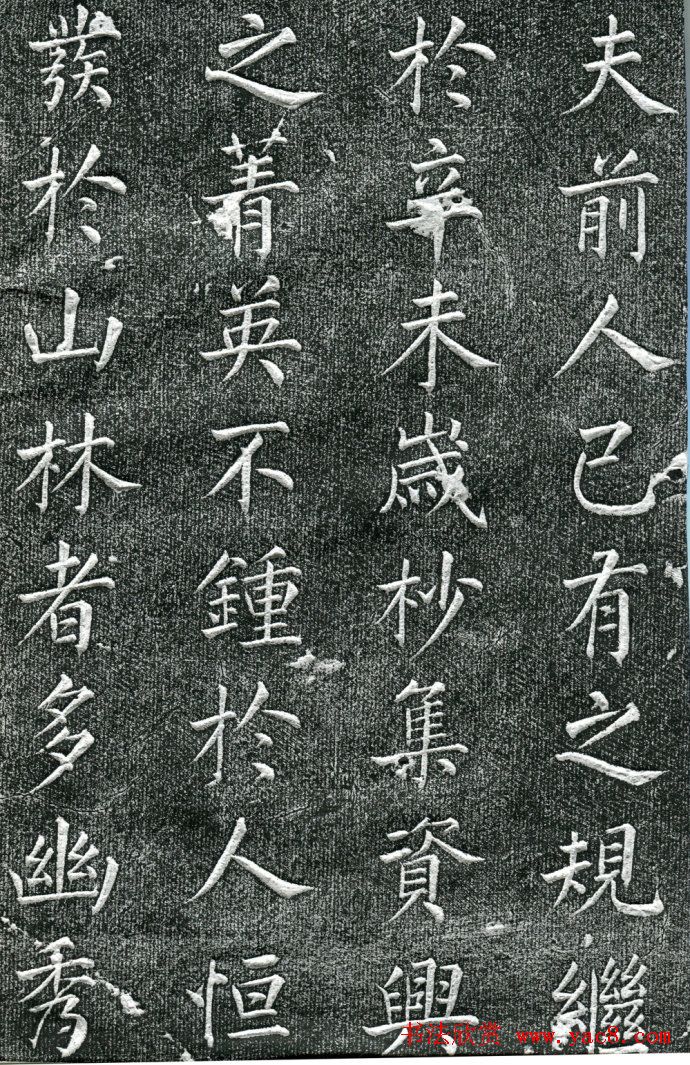 夫前人已有之規繼
於辛未歲杪集資興
之菁英不鍾於人恒
發於山林者多幽秀
书法欣赏 www.yac8.com